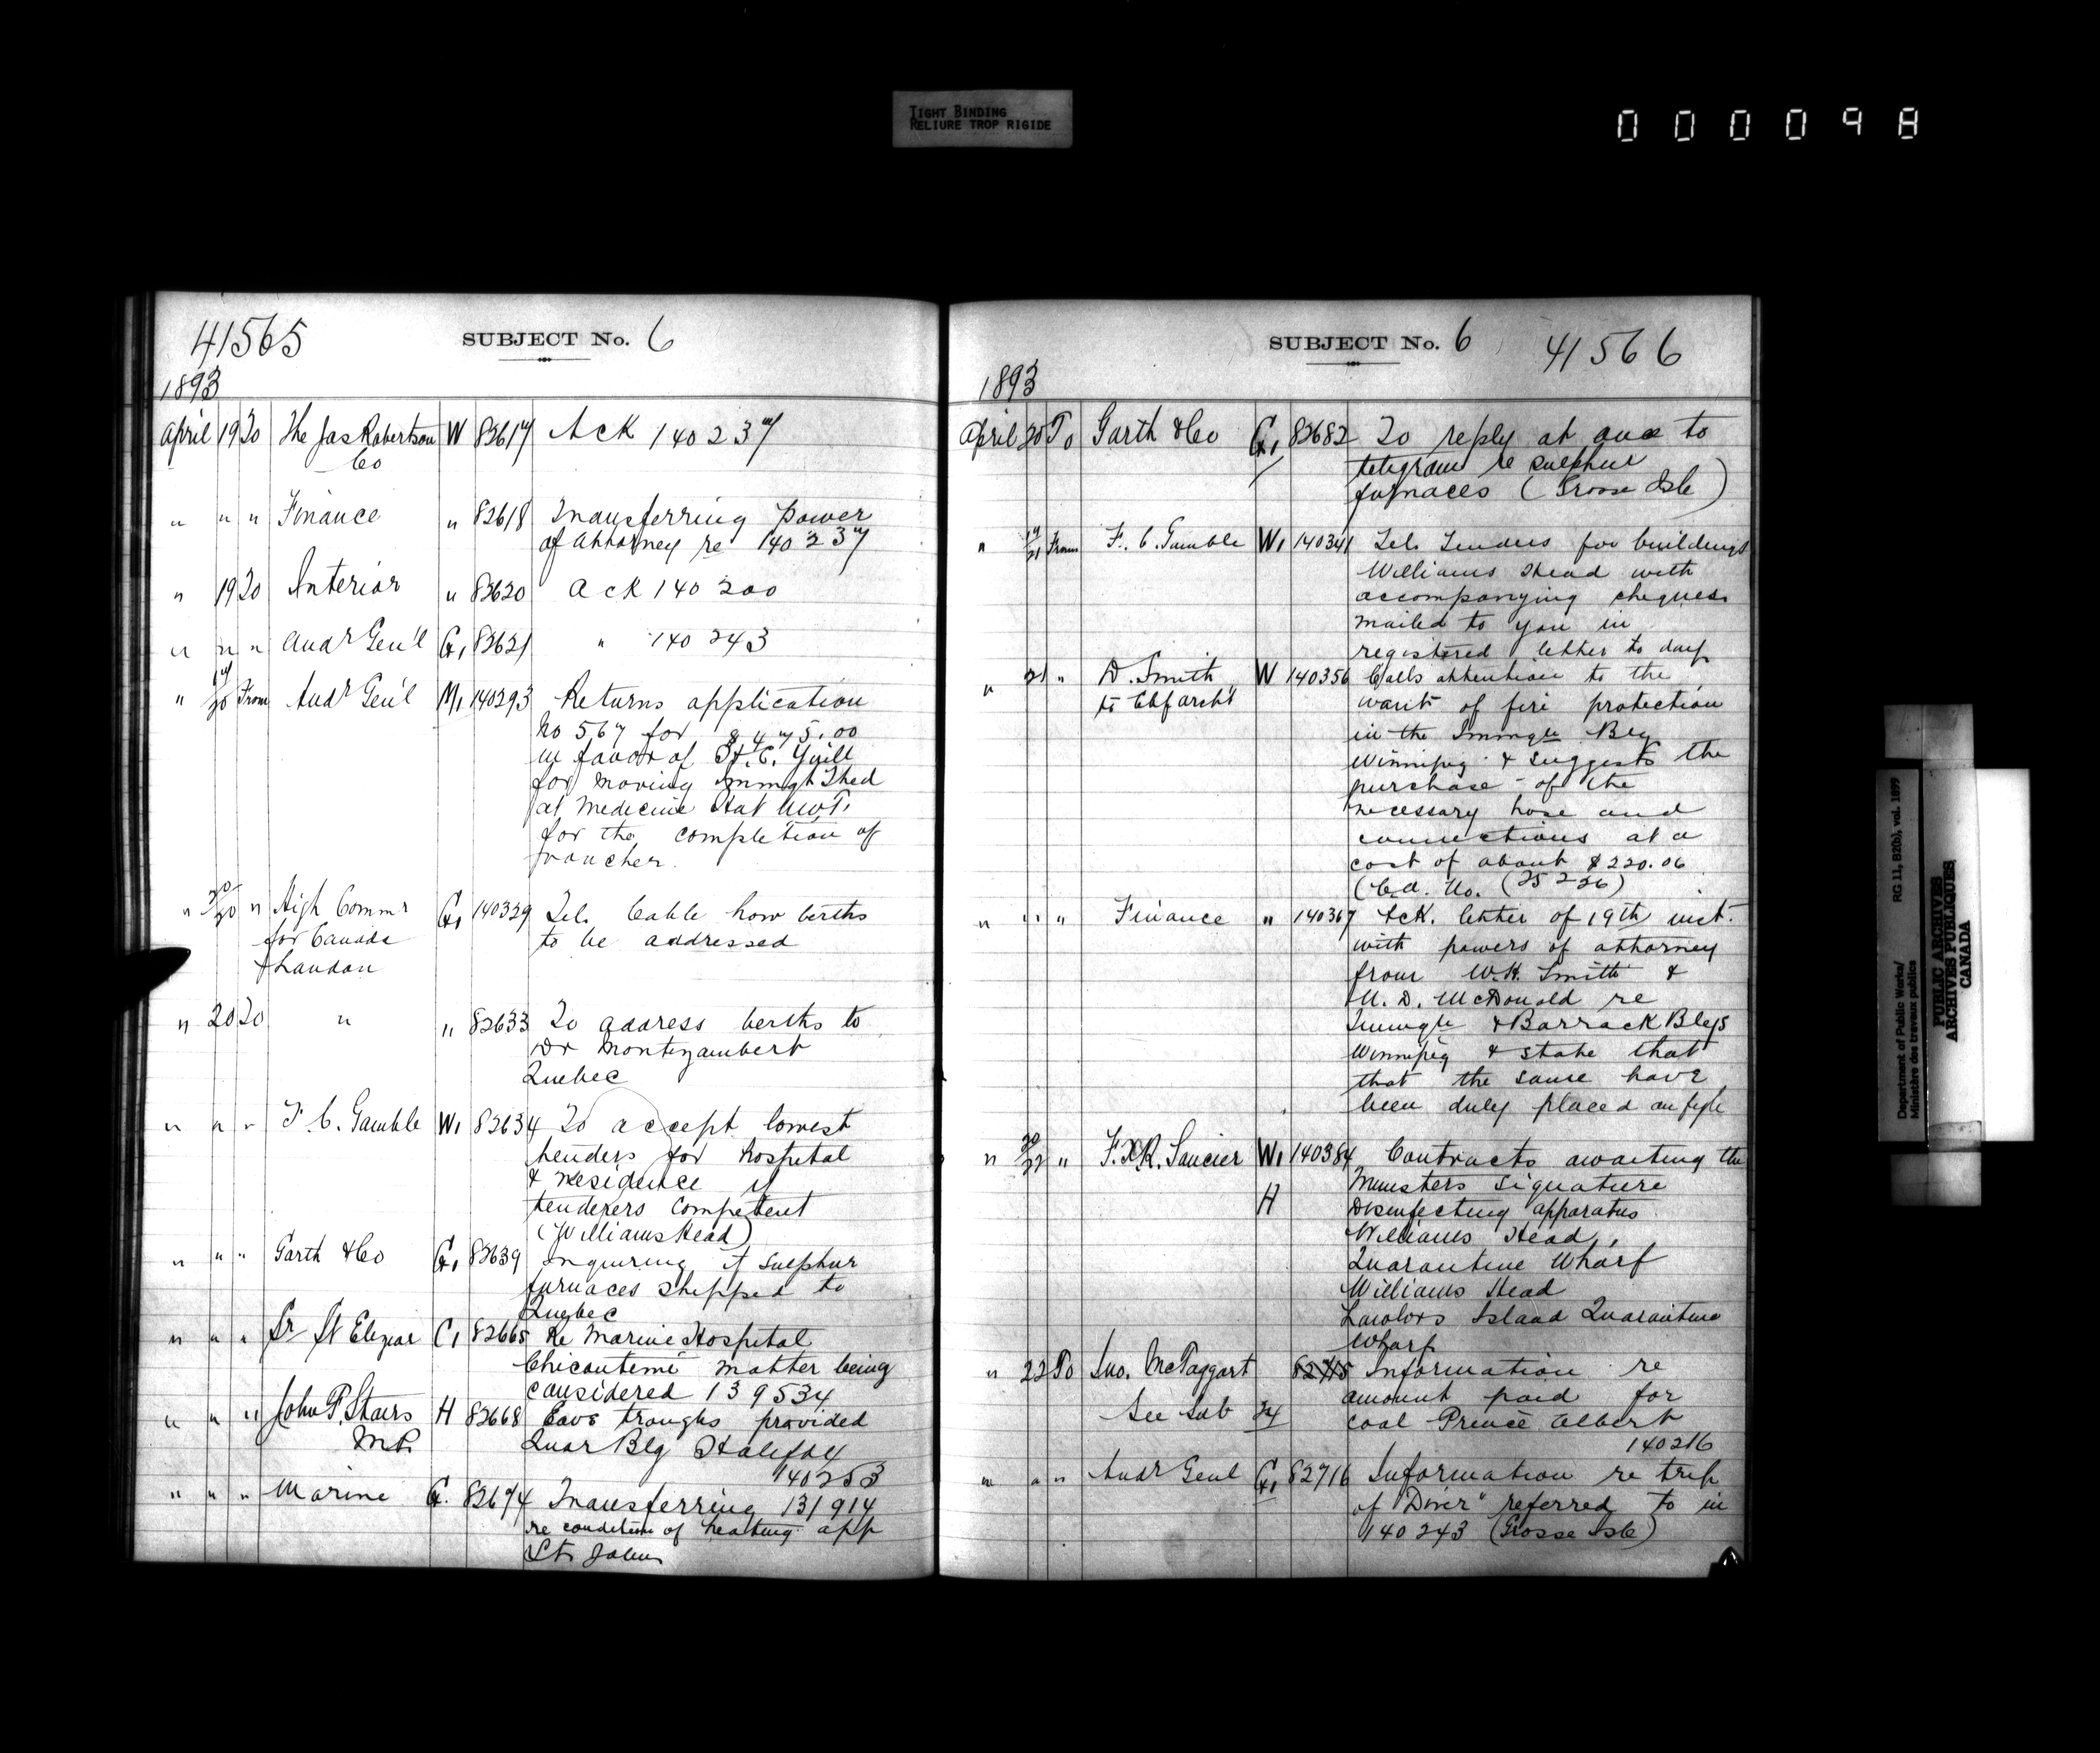 TIGHT BINDING
RELIURE TROP RIGIDE
000098
41565 SUBJECT No. 6
1893
April 19 To The Jas Robertson Co W 82617 Ack 140237
" " " Finance " 82618 Transferring power
of Attorney re 140237
" 19 To Interior " 82620 Ack 140200
" " " Audr Gen'l G, 82621 " 140243
" 17/20 From Audr Gen'l M, 140293 Returns application
No 567 for $475.00
in favor of H. C. Yuill
for moving Immigt Shed
at Medicine Hat N.W.T.
for the completion of
voucher.
" 20/20 " High Commr G, 140329 Tel. Cable how berths
for Canada to be addressed
London
" 20 To " " 82633 To address berths to
Dr Montizambert
Quebec
" " " F. C. Gamble W, 82634 To accept lowest
tenders for hospital
& residence if
tenderers competent
(Williams Head)
" " " Garth & Co G, 82639 Inquiring if sulphur
furnaces shipped to
Quebec
" " " Dr St Elzear C, 82665 Re Marine Hospital
Chicoutemi matter being
considered 139534
" " " John P. Stairs H 82668 Eave troughs provided
M.P. Quar Blg Halifax
140253
" " " Marine G. 82674 Transferring 131914
re condition of heating app
St. John
SUBJECT No. 6 41566
1893
April 20 To Garth & Co G, 82682 To reply at once to
telegram re sulphur
furnaces (Grosse Isle)
" 19/21 From F. C. Gamble W, 140341 Tel. Tenders for buildings
Williams Head with
accompanying cheques
mailed to you in
registered letter to day
" 21 " D. Smith W 140356 Calls attention to the
to Chf archt want of fire protection
in the Immigtn Blg
Winnipeg & suggests the
purchase of the
necessary hose and
connections at a
cost of about $220.06
(C.a. No. (25226)
" " " Finance " 140367 Ack. letter of 19th inst.
with powers of attorney
from W.H. Smith &
N. D. McDonald re
Immigtn & Barrack Blgs
Winnipeg & state that
that the same have
been duly placed on fyle
" 20/22 " F.X.R. Saucier W, 140384 Contracts awaiting the
Ministers signature
H Disinfecting apparatus
Williams Head,
Quarantine Wharf
Williams Head
Lawlors Island Quarantine
Wharf
" 22 To Jno. McTaggart 82715 Information re
amount paid for
See Sub 24 coal Prince Albert
140216
" " " Audr Genl G, 82716 Information re trip
of "Diver" referred to in
140243 (Grosse Isle)
Department of Public Works/
Ministère des travaux publics
RG 11, B2(b), vol. 1899
PUBLIC ARCHIVES
ARCHIVES PUBLIQUES
CANADA